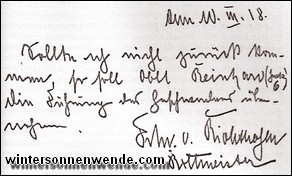 den 10. III. 18.
Sollte ich nicht zurück kom-
men, so soll Oblt Reinhard (Jasta 6)
die Führung des Geschwaders über-
nehmen.
Frhr. v. Richthofen
Rittmeister
wintersonnenwende.com